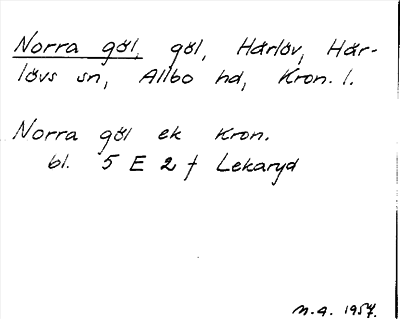 Norra göl, göl, Härlöv, Här-
lövs sn, Allbo hd, Kron. l.
Norra göl ek Kron.
bl. 5 E 2 f Lekaryd
M.A. 1957.